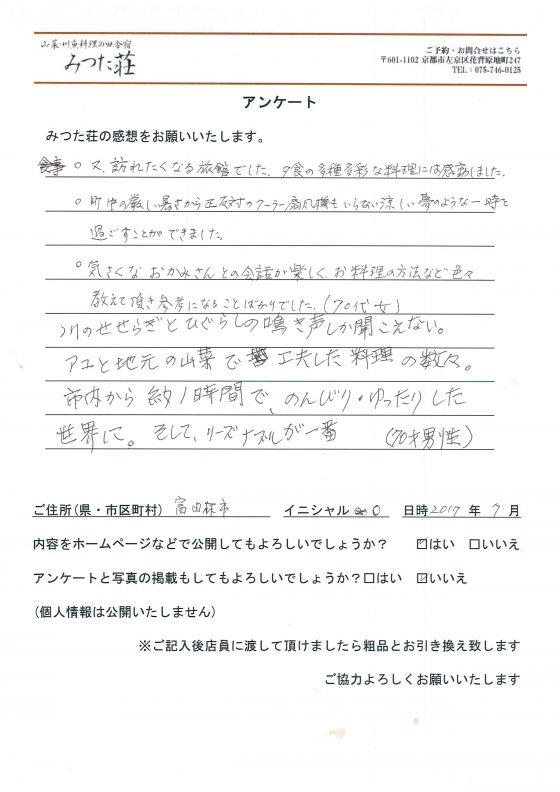 山菜・川魚料理の田舎宿
みつた荘
ご予約・お問合せはこちら
〒601-1102 京都市左京区花脊原地町247
TEL：075-746-0125
アンケート
みつた荘の感想をお願いいたします。
食事 ○ 又、訪れたくなる旅館でした。夕食の多種多彩な料理には感動しました。
○ 町中の厳しい暑さから正反対のクーラー扇風機もいらない涼しい夢のような一時を
過ごすことができました。
○ 気さくなおかみさんとの会話が楽しく、お料理の方法など色々
教えて頂き参考になることばかりでした。(70代 女)
川のせせらぎとひぐらしの鳴き声しか聞こえない。
アユと地元の山菜で 工夫した料理の数々。
市内から約1時間で、のんびり・ゆったりした
世界に。そして、リーズナブルが一番 (70才男性)
ご住所(県・市区町村) 富田林市 イニシャル O 日時 2017 年 7 月
内容をホームページなどで公開してもよろしいでしょうか？ ☑はい □いいえ
アンケートと写真の掲載もしてもよろしいでしょうか？□はい ☑いいえ
(個人情報は公開いたしません)
※ご記入後店員に渡して頂けましたら粗品とお引き換え致します
ご協力よろしくお願いいたします